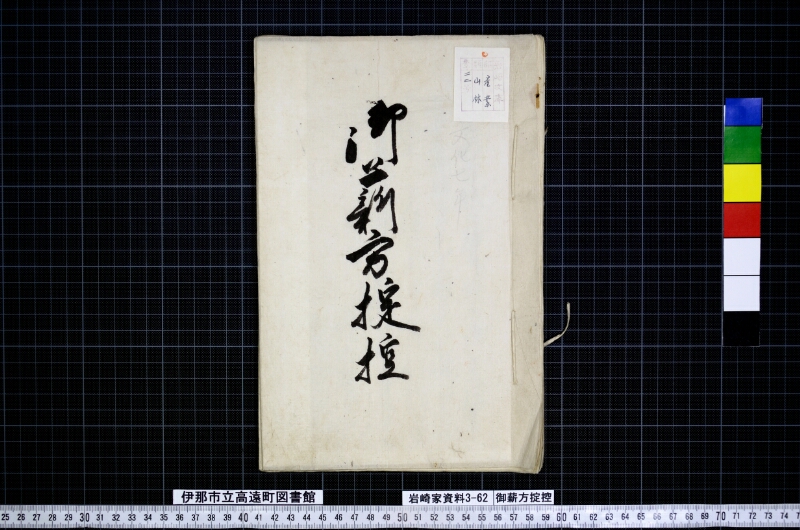 産業
山林
二二
御薪方掟控
伊那市立高遠町図書館
岩崎家資料3-62
御薪方掟控
25 26 27 28 29 30 31 32 33 34 35 36 37 38 39 40 41 42 43 44 45 46 47 48 49 50 51 52 53 54 55 56 57 58 59 60 61 62 63 64 65 66 67 68 69 70 71 72 73 74